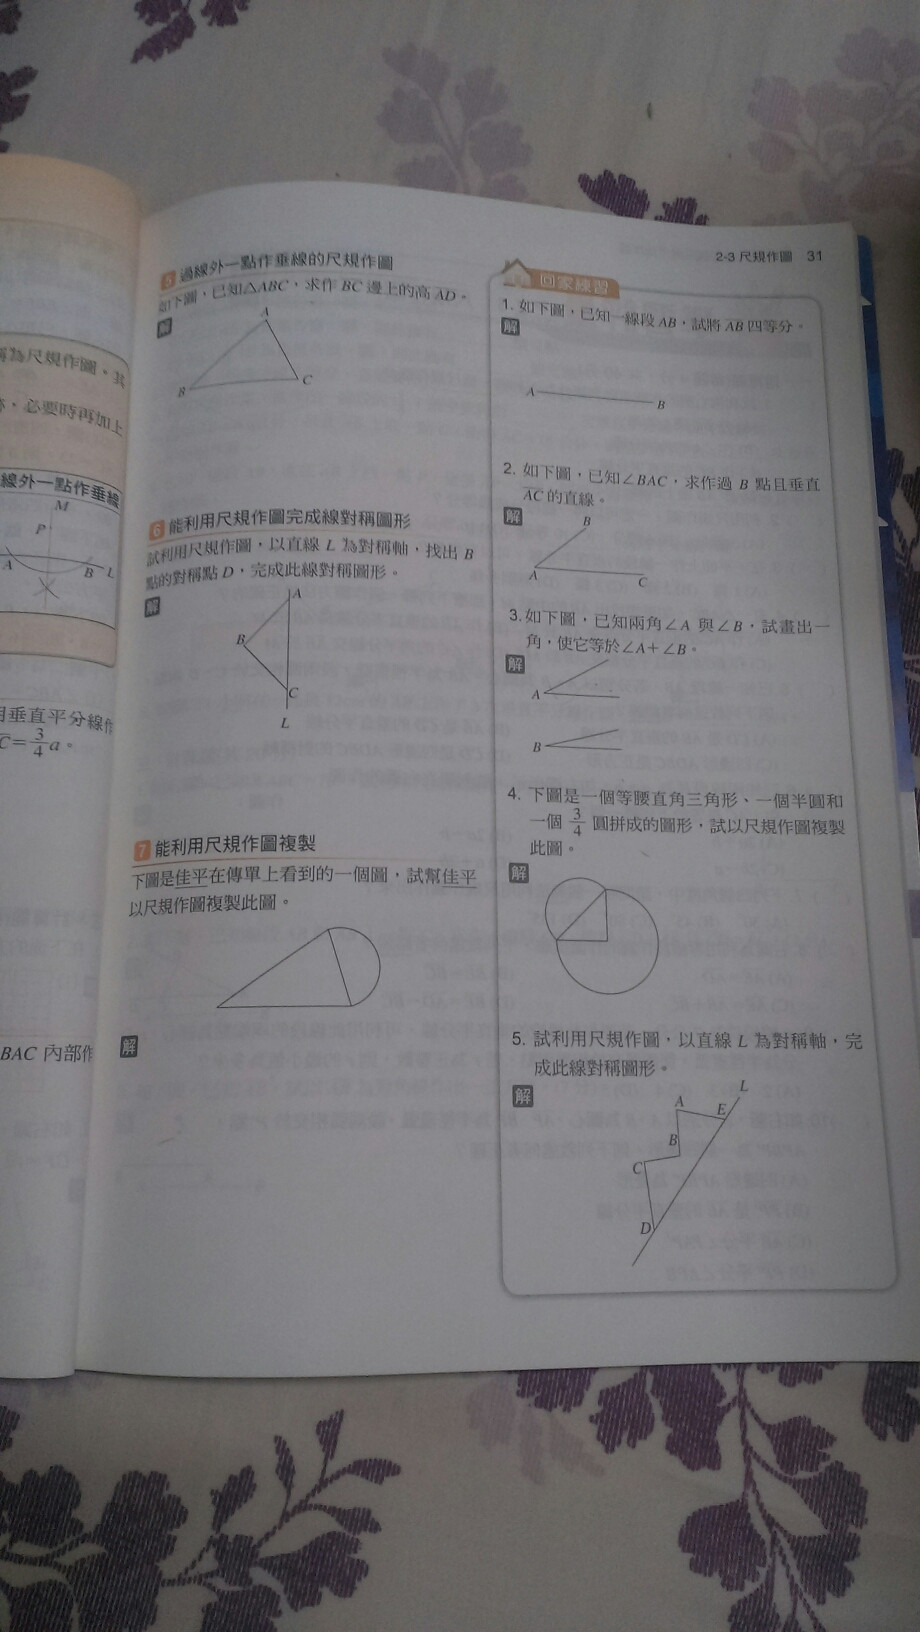 為尺規作圖。其
，必要時再加上
線外一點作垂線
M
P
A
B
L
用垂直平分線作
C=3/4a。
BAC 內部作
2-3 尺規作圖 31
5 過線外一點作垂線的尺規作圖
如下圖，已知△ABC，求作 BC 邊上的高 AD。
解
A
B
C
6 能利用尺規作圖完成線對稱圖形
試利用尺規作圖，以直線 L 為對稱軸，找出 B
點的對稱點 D，完成此線對稱圖形。
解
A
B
C
L
7 能利用尺規作圖複製
下圖是佳平在傳單上看到的一個圖，試幫佳平
以尺規作圖複製此圖。
解
回家練習
1. 如下圖，已知一線段 AB，試將 AB 四等分。
解
A
B
2. 如下圖，已知∠BAC，求作過 B 點且垂直
AC 的直線。
解
B
A
C
3. 如下圖，已知兩角∠A 與∠B，試畫出一
角，使它等於∠A+∠B。
解
A
B
4. 下圖是一個等腰直角三角形、一個半圓和
一個 3/4 圓拼成的圖形，試以尺規作圖複製
此圖。
解
5. 試利用尺規作圖，以直線 L 為對稱軸，完
成此線對稱圖形。
解
L
A
E
B
C
D